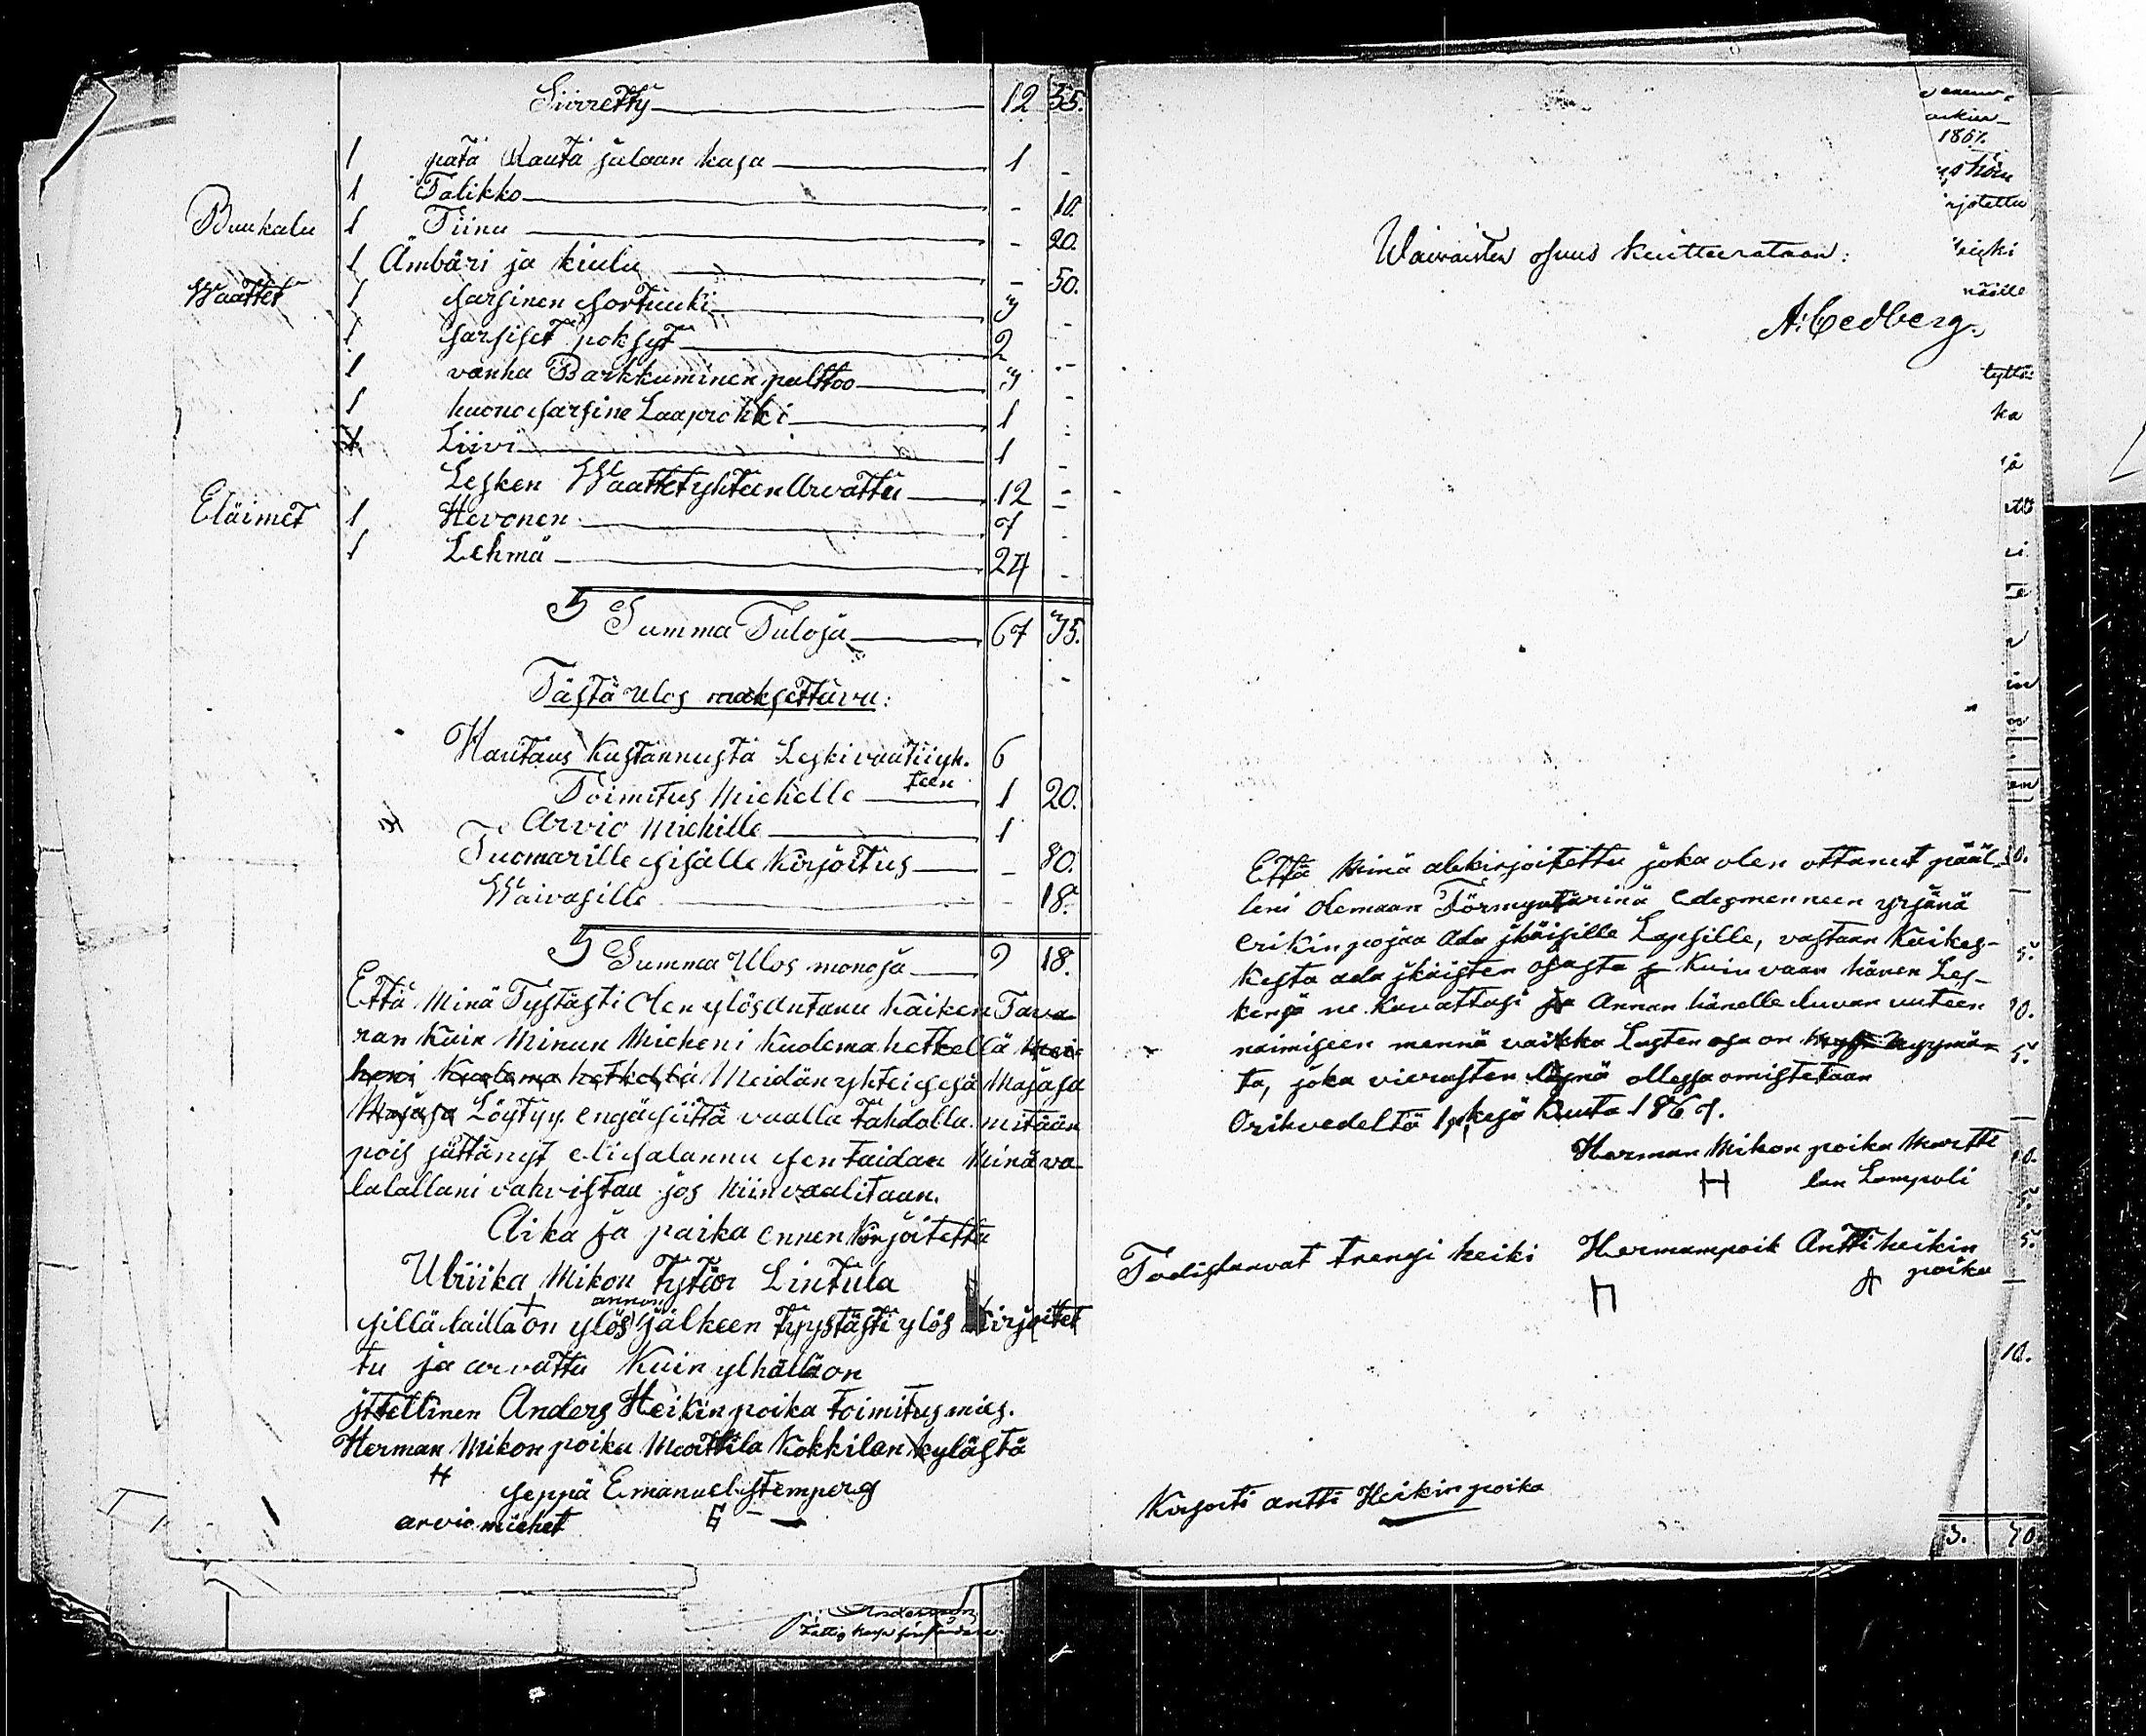 Siirretty 12 55.
1 pata Rauta jalaan kasa 1 -
1 Talikko - 10.
Buukalu 1 Tiinu - 20.
1 Ämbäri ja kiulu - 50.
Waattet 1 sarsinen sortuuki 3 -
1 sarsiset poksyt 2 -
1 vanha Barkkuminen palttoo 3 -
1 huono sarsine Laaprokki 1 -
1 Liivi 1 -
Lesken Waattet yhteen Arvattu 12 -
Eläimet 1 Hevonen 7 -
1 Lehmä 24 -
Summa Tuloja 67 35.
Tästä ulos maksettava:
Hautaus kustannusta Leski vaatii yh. 6
teen
Toimitus Miehelle 1 20.
Arvio Miehille 1
Tuomarille sisälle kirjoitus - 80.
Waivasille - 18.
Summa Ulos monoja 9 18.
Että Minä Tystästi olen ylös Antanu kaiken Tava
ran kuin Minun Mieheni kuolema hetkellä Mei
heni kuolema hetkellä Meidän yhteisesä Majasa
Majasa Löytyy. engä siittä vaalla tahdolla mitään
pois jättänyt eli salannu sen taidan Minä va
lalallani vahvistaa jos niin vaalitaan.
Aika ja paika ennen kirjoitettu
Ulriika Mikon Tytär Lintula
+ annon
sillä lailla on ylös jälkeen Tyystästi ylös kirjoitet
tu ja arvattu kuin ylhällä on
jttellinen Anders Heikin poika toimitus mies.
Herman Mikon poika Marttila Kokkilan kylästä
H seppä Emanuel stemperg
arvio miehet
Waivaisten osuus kuitteerataan:
A. Cedberg.
Että Minä alekirjoitettu joka olen ottanut pääl
leni olemaan Förmyntärinä edesmenneen yrjänä
erikin pojaa ala jkäisille Lapsille, vastaan kaikes
kesta ala jkäisten osasta kuin vaan hänen Les-
kensä ne kasvattasi ja Annan hänelle luvan uuteen
naimiseen mennä vaikka Lasten osa on kysymän
tä, joka vierasten läsnä ollessa omistetaan
Orihvedeltä 1 p. kesä kuuta 1867.
Herman Mikon poika Martti
H lan Lampoli
Todistaavat trengi heiki Hermampoik Antti heikin
poika
Kirjoiti antti Heikin poika
1867.